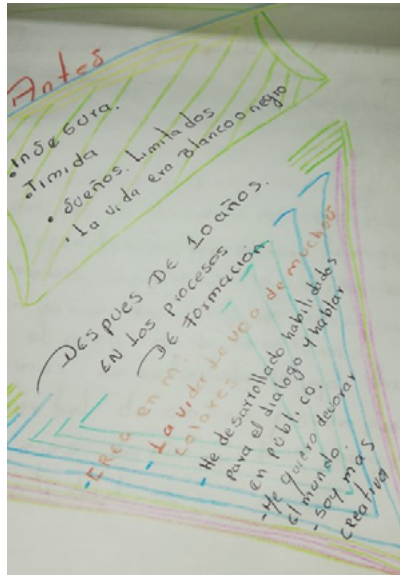 Antes
• Insegura.
• Timida
• Sueños. Limitados
• La vida era Blanco o negro
Despues De 10 años.
en los procesos
De Formación
- Crea en mi
- La vida la veo de muchos
colores
- He desarrollado habilidades
para el dialogo y hablar
en público.
- Me quiero devorar
el mundo.
- Soy mas
creativa